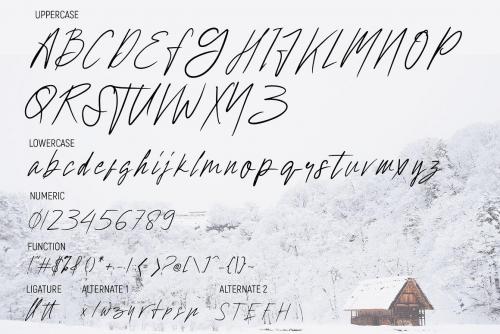 UPPERCASE
ABCDEFGHIJKLMNOP
QRSTUVWXYZ
LOWERCASE
abcdefghijklmnopqrstuvwxyz
NUMERIC
0123456789
FUNCTION
LIGATURE ALTERNATE 1 ALTERNATE 2
tt x l w z y r t p s n S T E F H